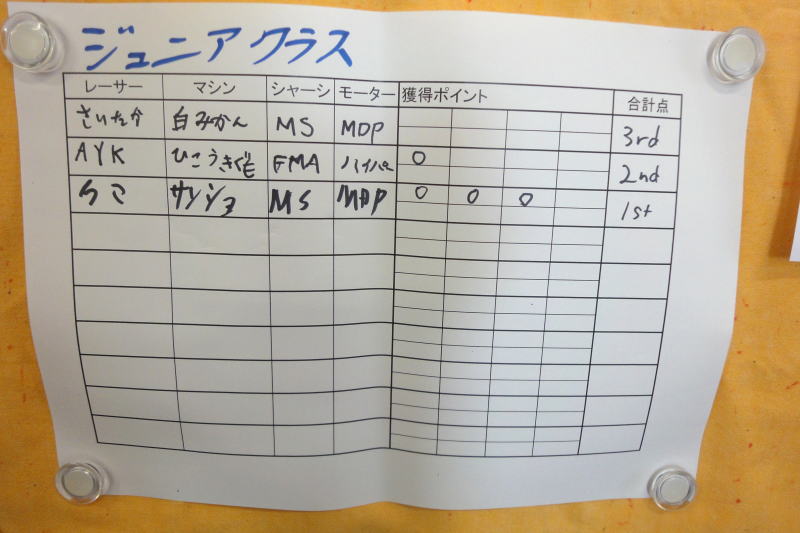 ジュニアクラス
レーサー マシン シャーシ モーター 獲得ポイント 合計点
さいたか 白みかん MS MDP 3rd
AYK ひこうきぐも FMA ハイパー ○ 2nd
サンショ MS MDP ○ ○ ○ 1st